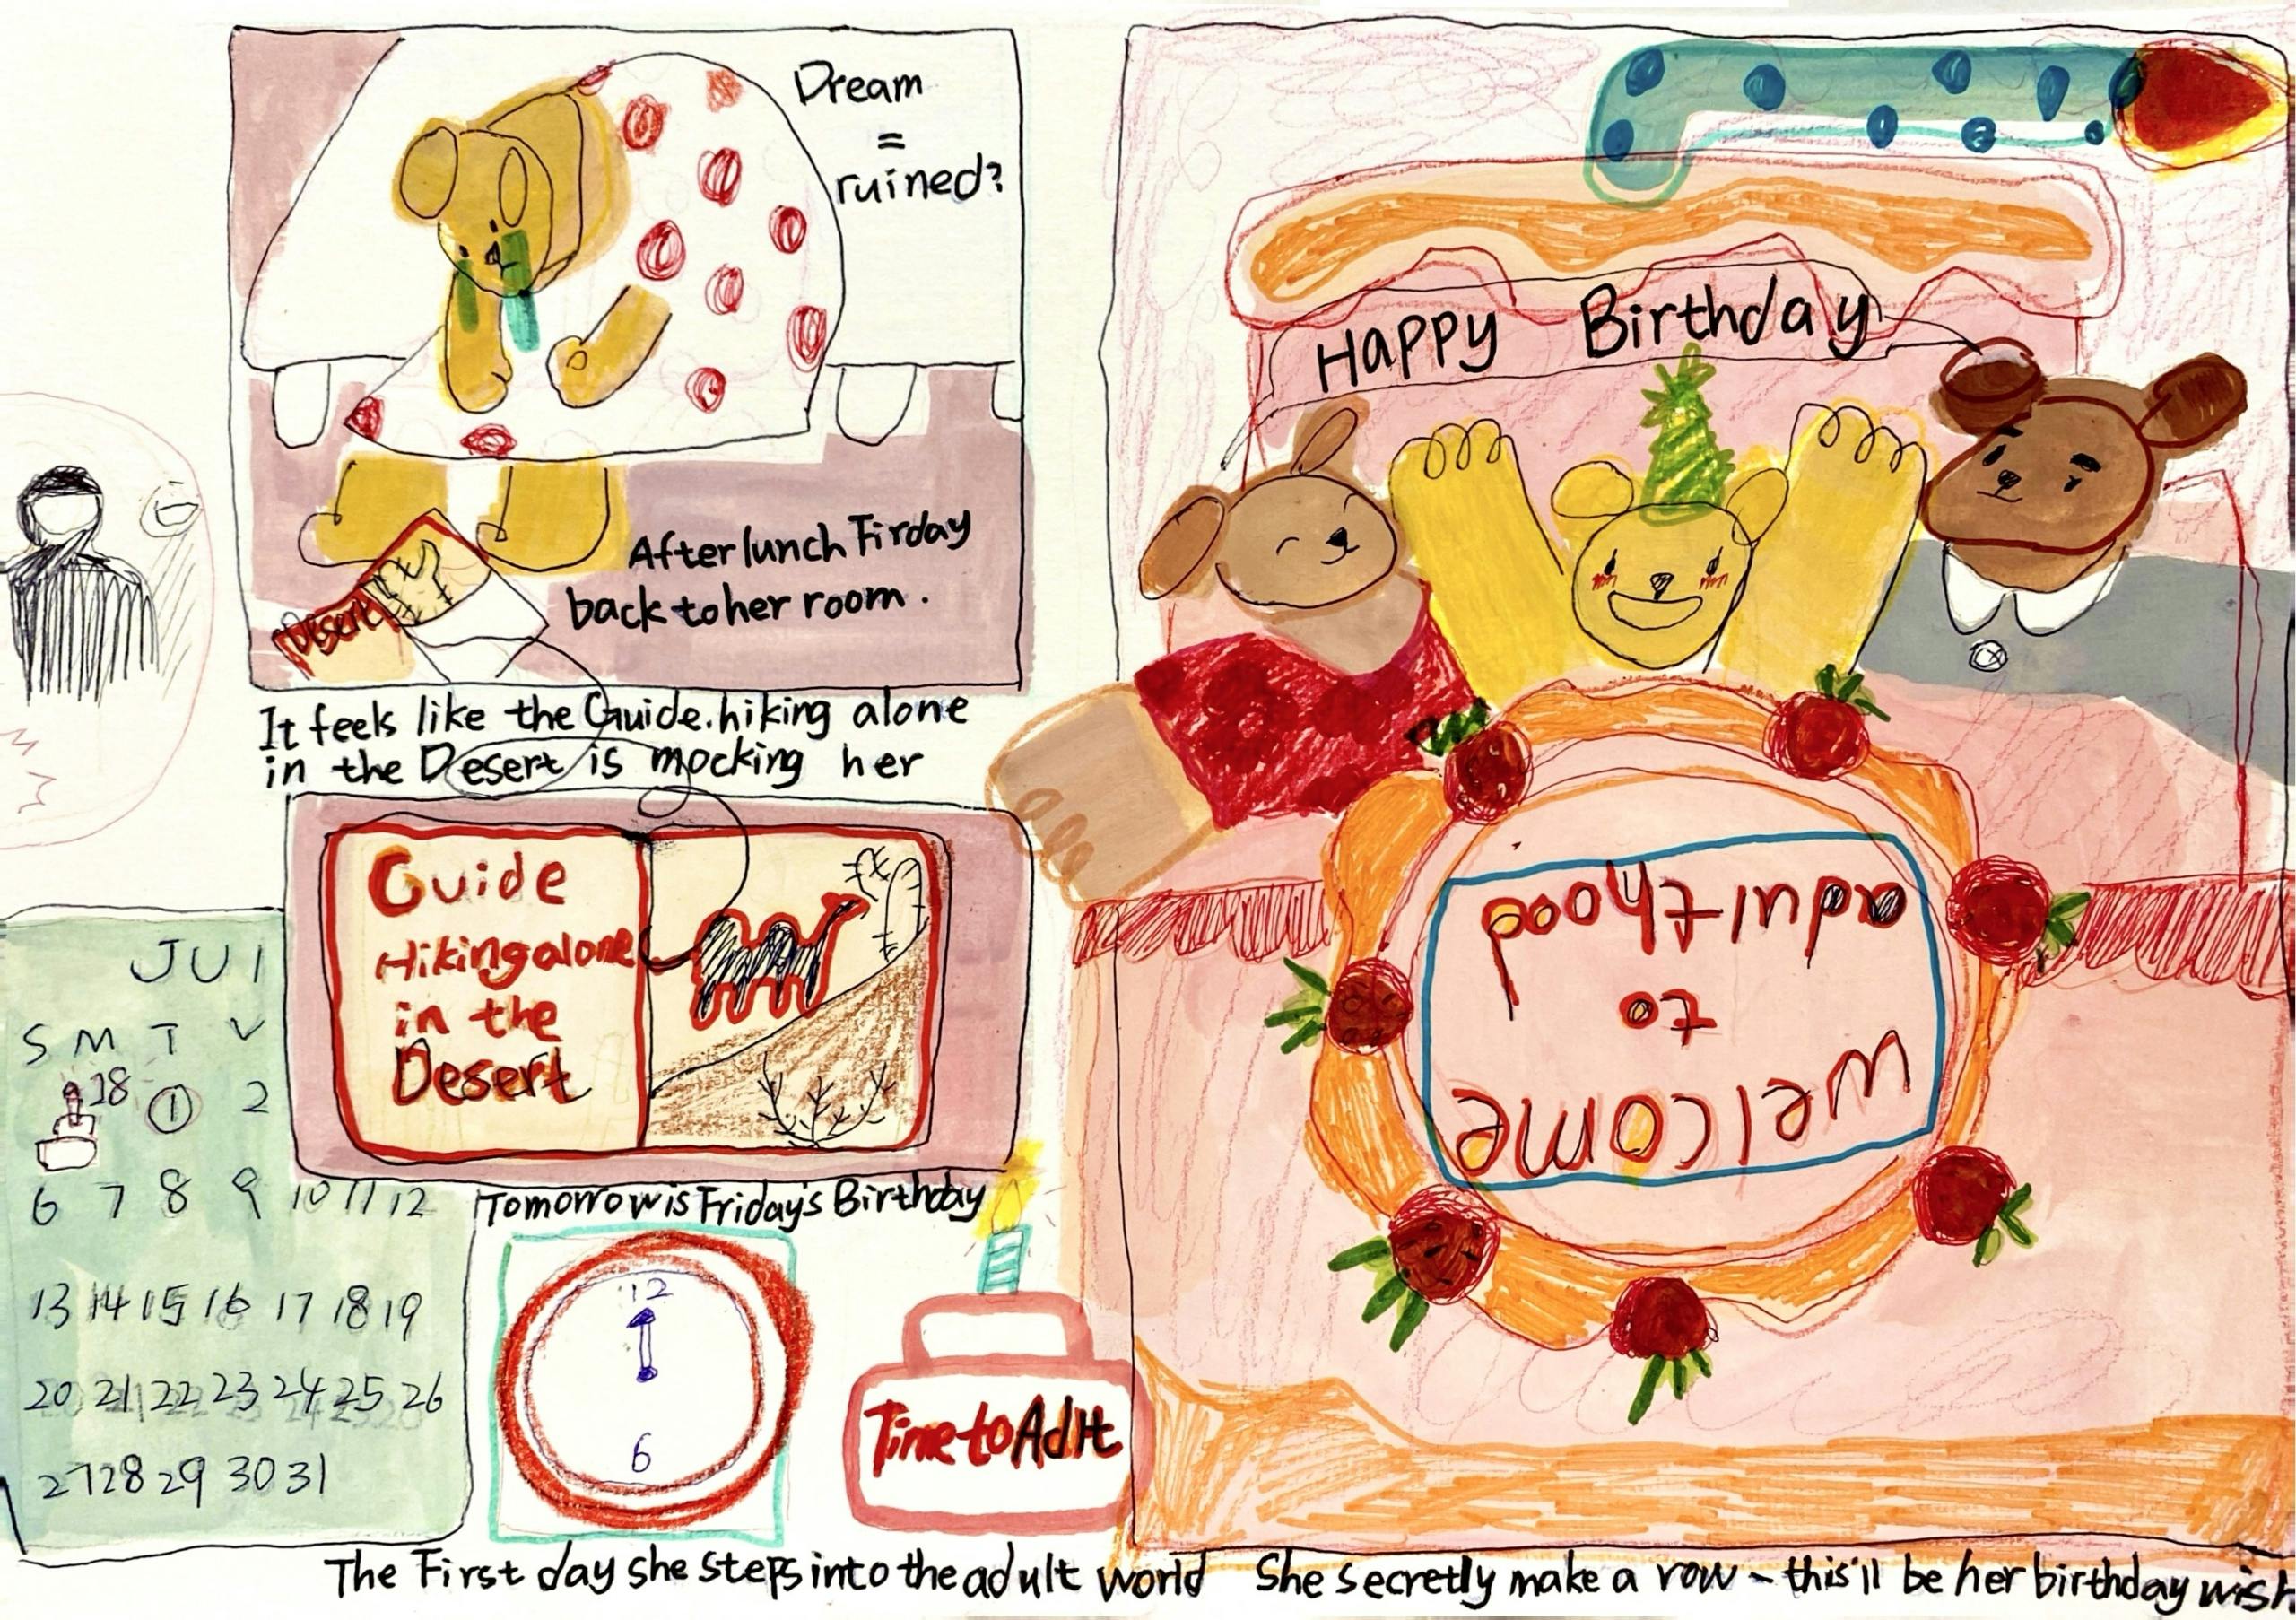 Dream
=
ruined?
After lunch Firday
back to her room.
Desert
It feels like the Guide.hiking alone
in the Desert is mocking her
Guide
Hiking alone
in the
Desert
JUl
S M T V
18 1 2
6 7 8 9 10 11 12
13 14 15 16 17 18 19
20 21 22 23 24 25 26
27 28 29 30 31
Tomorrow is Friday's Birthday
12
6
Time to Adlt
The First day she steps into the adult world
Happy Birthday
welcome
to
adulthood
She secretly make a vow - this'll be her birthday wish